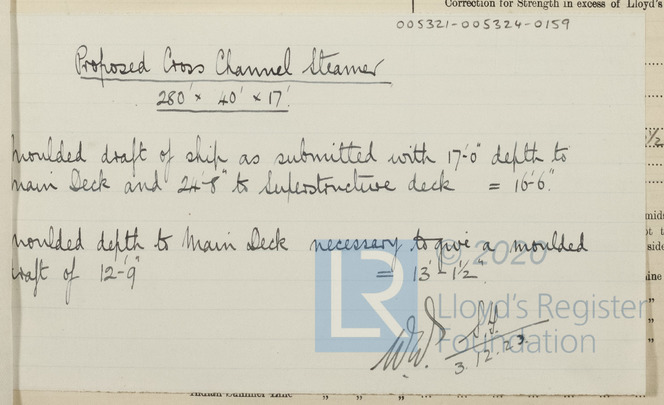 Correction for Strength in excess of Lloyd's
005321-005324-0159
Proposed Cross Channel Steamer
280' × 40' × 17'
Moulded draft of ship as submitted with 17'-0" depth to
Main Deck and 24'-8" to Superstructure deck = 16'-6".
Moulded depth to Main Deck necessary to give a moulded
draft of 12'-9" = 13'-1½"
© 2020
LR
Lloyd's Register
Foundation
3.12.23.